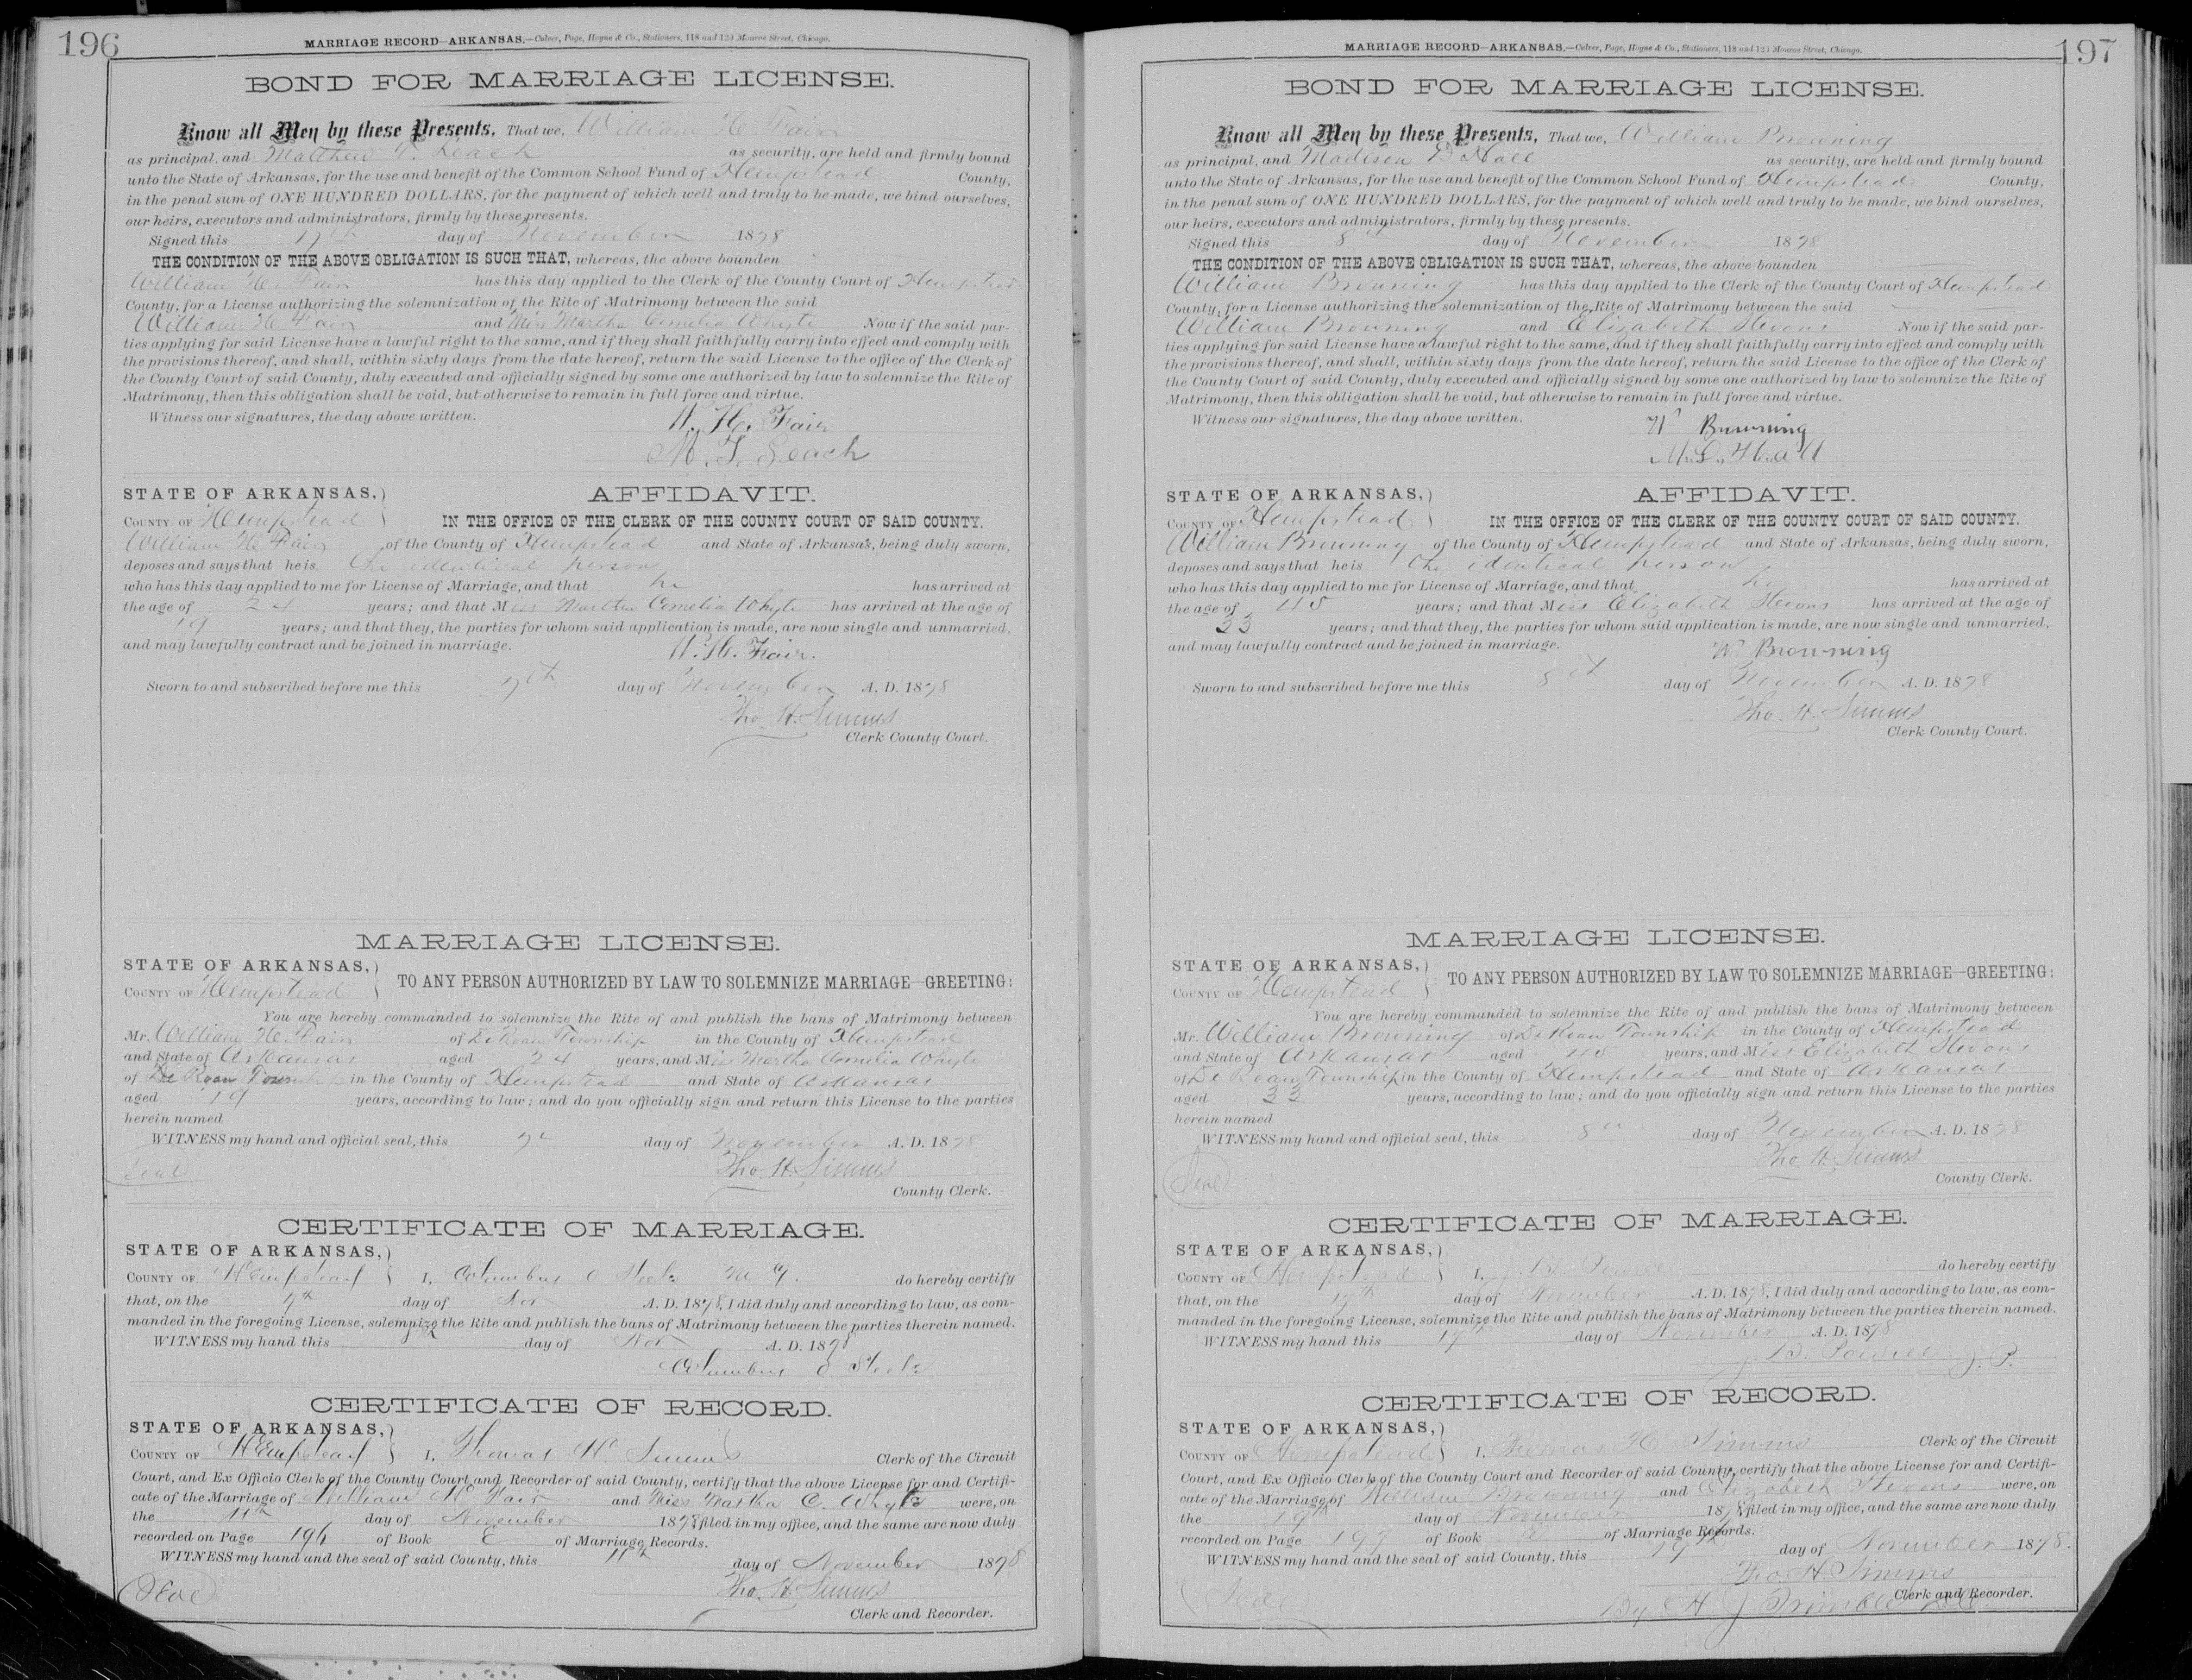 196
MARRIAGE RECORD—ARKANSAS.—Culver, Page, Hoyne & Co., Stationers, 118 and 120 Monroe Street, Chicago.
BOND FOR MARRIAGE LICENSE.
Know all Men by these Presents, That we, William H. Fair
as principal, and Matthew T. Leach as security, are held and firmly bound
unto the State of Arkansas, for the use and benefit of the Common School Fund of Hempstead County,
in the penal sum of ONE HUNDRED DOLLARS, for the payment of which well and truly to be made, we bind ourselves,
our heirs, executors and administrators, firmly by these presents.
Signed this 7th day of November 1878
THE CONDITION OF THE ABOVE OBLIGATION IS SUCH THAT, whereas, the above bounden
William H. Fair has this day applied to the Clerk of the County Court of Hempstead
County, for a License authorizing the solemnization of the Rite of Matrimony between the said
William H Fair and Miss Martha Cornelia Whyte Now if the said par-
ties applying for said License have a lawful right to the same, and if they shall faithfully carry into effect and comply with
the provisions thereof, and shall, within sixty days from the date hereof, return the said License to the office of the Clerk of
the County Court of said County, duly executed and officially signed by some one authorized by law to solemnize the Rite of
Matrimony, then this obligation shall be void, but otherwise to remain in full force and virtue.
Witness our signatures, the day above written.
W. H. Fair
M. T. Leach
STATE OF ARKANSAS, AFFIDAVIT.
COUNTY OF Hempstead IN THE OFFICE OF THE CLERK OF THE COUNTY COURT OF SAID COUNTY.
William H Fair of the County of Hempstead and State of Arkansas, being duly sworn,
deposes and says that he is the identical person
who has this day applied to me for License of Marriage, and that he has arrived at
the age of 24 years; and that Miss Martha Cornelia Whyte has arrived at the age of
19 years; and that they, the parties for whom said application is made, are now single and unmarried,
and may lawfully contract and be joined in marriage.
W. H. Fair.
Sworn to and subscribed before me this 7th day of November A. D. 1878
Tho. H. Simms
Clerk County Court.
MARRIAGE LICENSE.
STATE OF ARKANSAS,
COUNTY OF Hempstead TO ANY PERSON AUTHORIZED BY LAW TO SOLEMNIZE MARRIAGE—GREETING:
You are hereby commanded to solemnize the Rite of and publish the bans of Matrimony between
Mr. William H. Fair of De Roan Township in the County of Hempstead
and State of Arkansas aged 24 years, and Miss Martha Cornelia Whyte
of De Roan Township in the County of Hempstead and State of Arkansas
aged 19 years, according to law; and do you officially sign and return this License to the parties
herein named
WITNESS my hand and official seal, this 7th day of November A. D. 1878
Seal
Tho. H. Simms
County Clerk.
CERTIFICATE OF MARRIAGE.
STATE OF ARKANSAS,
COUNTY OF Hempstead I, Columbus C Steele M G. do hereby certify
that, on the 7th day of Nov A. D. 1878, I did duly and according to law, as com-
manded in the foregoing License, solemnize the Rite and publish the bans of Matrimony between the parties therein named.
WITNESS my hand this day of Nov A. D. 1878
Columbus C Steele
CERTIFICATE OF RECORD.
STATE OF ARKANSAS,
COUNTY OF Hempstead I, Thomas H Simms Clerk of the Circuit
Court, and Ex Officio Clerk of the County Court and Recorder of said County, certify that the above License for and Certifi-
cate of the Marriage of William H Fair and Miss Martha C. Whyte were, on
the 11th day of November 1878, filed in my office, and the same are now duly
recorded on Page 196 of Book E of Marriage Records.
WITNESS my hand and the seal of said County, this 11th day of November 1878
Seal
Tho. H. Simms
Clerk and Recorder.
197
MARRIAGE RECORD—ARKANSAS.—Culver, Page, Hoyne & Co., Stationers, 118 and 120 Monroe Street, Chicago.
BOND FOR MARRIAGE LICENSE.
Know all Men by these Presents, That we, William Browning
as principal, and Madison D Hall as security, are held and firmly bound
unto the State of Arkansas, for the use and benefit of the Common School Fund of Hempstead County,
in the penal sum of ONE HUNDRED DOLLARS, for the payment of which well and truly to be made, we bind ourselves,
our heirs, executors and administrators, firmly by these presents.
Signed this 8th day of November 1878
THE CONDITION OF THE ABOVE OBLIGATION IS SUCH THAT, whereas, the above bounden
William Browning has this day applied to the Clerk of the County Court of Hempstead
County, for a License authorizing the solemnization of the Rite of Matrimony between the said
William Browning and Elizabeth Stevens Now if the said par-
ties applying for said License have a lawful right to the same, and if they shall faithfully carry into effect and comply with
the provisions thereof, and shall, within sixty days from the date hereof, return the said License to the office of the Clerk of
the County Court of said County, duly executed and officially signed by some one authorized by law to solemnize the Rite of
Matrimony, then this obligation shall be void, but otherwise to remain in full force and virtue.
Witness our signatures, the day above written.
W Browning
M. D. Hall
STATE OF ARKANSAS, AFFIDAVIT.
COUNTY OF Hempstead IN THE OFFICE OF THE CLERK OF THE COUNTY COURT OF SAID COUNTY.
William Browning of the County of Hempstead and State of Arkansas, being duly sworn,
deposes and says that he is the identical person
who has this day applied to me for License of Marriage, and that he has arrived at
the age of 45 years; and that Miss Elizabeth Stevens has arrived at the age of
33 years; and that they, the parties for whom said application is made, are now single and unmarried,
and may lawfully contract and be joined in marriage.
W Browning
Sworn to and subscribed before me this 8th day of November A. D. 1878
Tho. H. Simms
Clerk County Court.
MARRIAGE LICENSE.
STATE OF ARKANSAS,
COUNTY OF Hempstead TO ANY PERSON AUTHORIZED BY LAW TO SOLEMNIZE MARRIAGE—GREETING:
You are hereby commanded to solemnize the Rite of and publish the bans of Matrimony between
Mr. William Browning of De Roan Township in the County of Hempstead
and State of Arkansas aged 45 years, and Miss Elizabeth Stevens
of De Roan Township in the County of Hempstead and State of Arkansas
aged 33 years, according to law; and do you officially sign and return this License to the parties
herein named
WITNESS my hand and official seal, this 8th day of November A. D. 1878
Seal
Tho. H. Simms
County Clerk.
CERTIFICATE OF MARRIAGE.
STATE OF ARKANSAS,
COUNTY OF Hempstead I, J. B. Powell do hereby certify
that, on the 17th day of November A. D. 1878, I did duly and according to law, as com-
manded in the foregoing License, solemnize the Rite and publish the bans of Matrimony between the parties therein named.
WITNESS my hand this 17th day of November A. D. 1878
J. B. Powell J. P.
CERTIFICATE OF RECORD.
STATE OF ARKANSAS,
COUNTY OF Hempstead I, Thomas H Simms Clerk of the Circuit
Court, and Ex Officio Clerk of the County Court and Recorder of said County, certify that the above License for and Certifi-
cate of the Marriage of William Browning and Elizabeth Stevens were, on
the 19th day of November 1878, filed in my office, and the same are now duly
recorded on Page 197 of Book E of Marriage Records.
WITNESS my hand and the seal of said County, this 19th day of November 1878.
Seal
Tho. H. Simms
Clerk and Recorder.
By H J Trimble